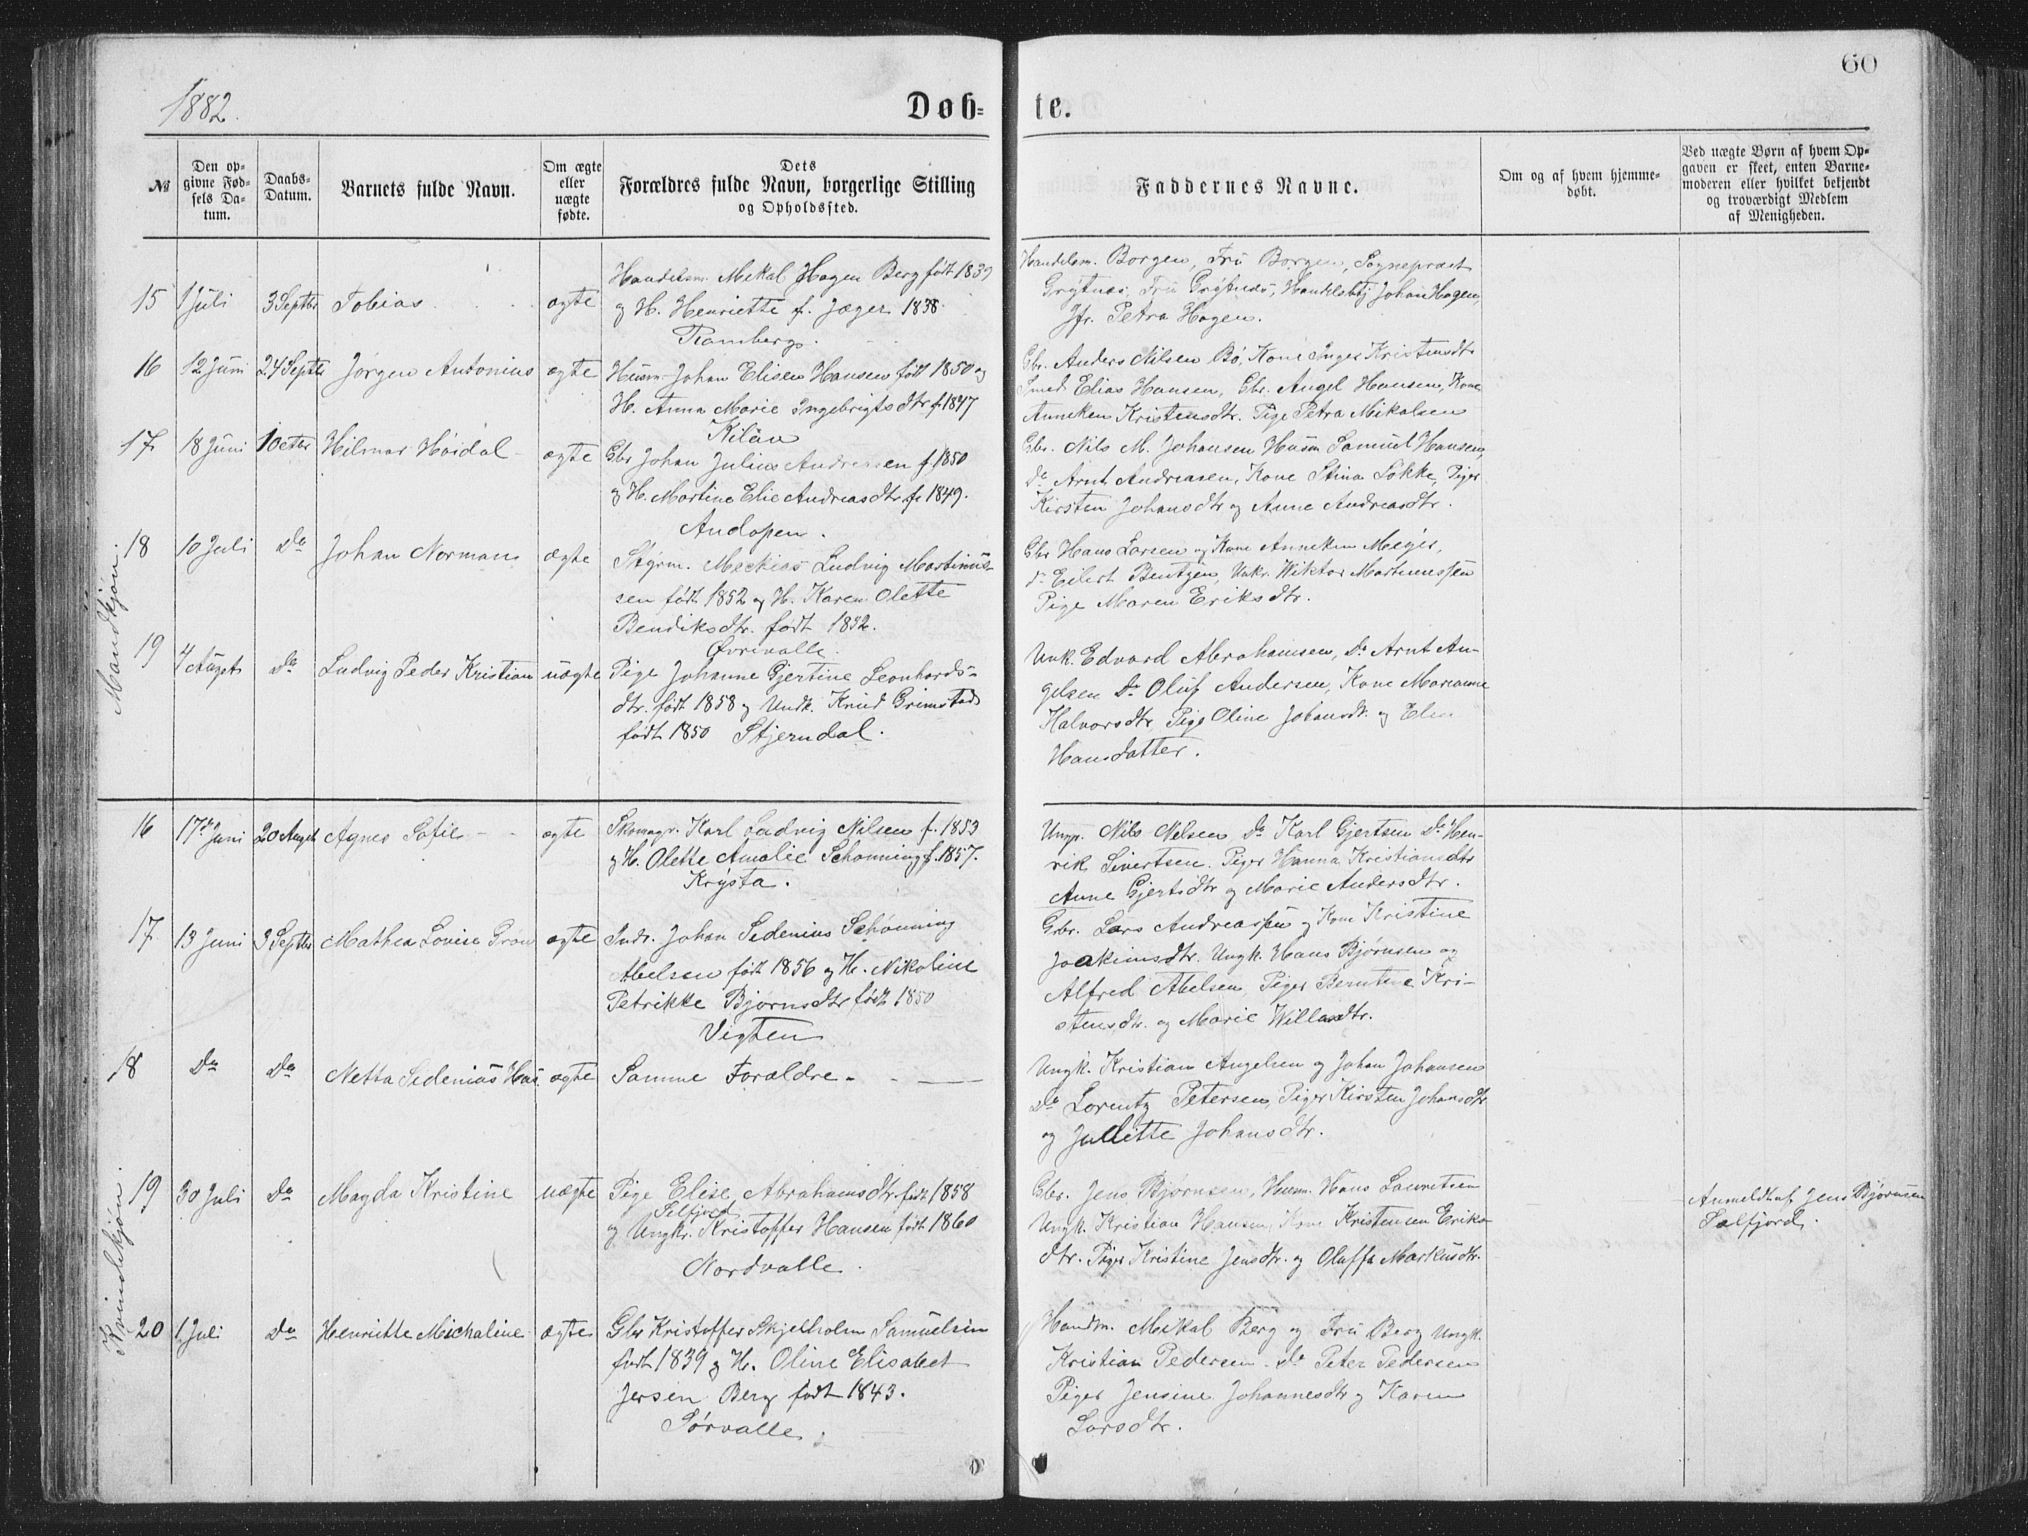 1882.
Døb=
te.
60
№
Den op=
givne Fød=
sels Da=
tum.
Daabs=
Datum.
Barnets fulde Navn.
Om ægte
eller
uægte
fødte.
Dets
Forældres fulde Navn, borgerlige Stilling
og Opholdssted.
Faddernes Navne.
Om og af hvem hjemme=
døbt.
Ved uægte Børn af hvem Op=
gaven er skeet, enten Barne=
moderen eller hvilket bekjendt
og troværdigt Medlem
af Menigheden.
Mandkjøn.
15 1 Juli 3 Septbr Tobias ægte
Handelsm. Mekal Hagen Berg født 1839
og H. Henriette f. Jæger 1838.
Ramberg.
Handelsm. Borgen, Fru Borgen, Sognepræst
Grytnæs, Fru Grytnæs, Handelsbtj Johan Hagen,
Jfr. Petra Hagen.
16 12 Juni 24 Septbr Jørgen Antonius ægte
Husm. Johan Elisen Hansen født 1850 og
H. Anna Marie Ingebrigtsdtr f. 1847
Kilan
Gbr. Anders Nilsen Bø, Kone Inger Kristensdtr
Smed Elias Hansen, Gbr. Angel Hansen, Kone
Anneken Kristensdtr. Pige Petra Mikalsen
17 18 Juni 1 Octbr Hilmar Høidal ægte
Gbr Johan Julius Andreasen f. 1850
og H. Martine Elie Andreasdtr f. 1849.
Andopen.
Gbr. Nils M. Johansen Husm Samuel Hansen,
do Arnt Andreasen, Kone Stina Løkke, Piger
Kirsten Johansdtr og Anne Andreasdtr.
18 10 Juli Do Johan Norman ægte
Styrm. Meckias Ludvig Martinus-
sen født 1852 og H. Karen Olette
Bendiksdtr. født 1832.
Øvrevalle.
Gbr Hans Larsen og Kone Anneken Meyer,
do Eilert Bentzen, Unkr. Wiktor Martinussen
Pige Maren Eriksdtr.
19 4 August Do Ludvig Peder Kristian uægte
Pige Johanne Gjertine Leonhards-
dtr. født 1858 og Undk. Knud Grimstad
født 1850 Stjerndal.
Unk. Edvard Abrahamsen, Do Arnt An-
gelsen Do Oluf Andersen, Kone Marianne
Halvorsdtr Pige Oline Johansdtr. og Elen
Hansdatter.
Kvindekjøn.
16 17de Juni 20 August Agnes Sofie ægte
Skomagr. Karl Ludvig Nilsen f. 1853
og H. Olette Amalie Schønning f. 1857.
Krysta.
Ungk. Nils Nilsen Do Karl Gjertsen Do Hen-
rik Sivertsen. Piger Hanna Kristiansdtr
Anne Gjertsdtr og Marie Andersdtr.
17 13 Juni 3 Septbr Mathea Lovise Grøn ægte
Indr. Johan Sedenius Schønning
Abelsen født 1856 og H. Nikoline
Petrikke Bjørnsdtr født 1850
Vigten
Grbr. Lars Andreassen og Kone Kristine
Joakimsdtr. Ungk. Hans Bjørnsen og
Alfred Abelsen, Piger Berntine Kri-
stensdtr. og Marie Willasdtr.
18 Do Do Netta Sedenius Hos. ægte
Samme Forældre.
Ungk. Kristian Angelsen og Johan Johansen
Do Lorentz Petersen, Piger Kirsten Johansdtr
og Juliette Johansdtr.
19 30 Juli Do Magda Kristine uægte
Pige Elise Abrahamsdtr. født 1858
Selfjord
og Ungkr. Kristoffer Hansen født 1860
Nordvalle.
Gbr. Jens Bjørnsen, Husm. Hans Lauretsen
Ungk. Kristian Hansen, Kone Kristensen Eriks-
dtr. Piger Kristine Jensdtr. og Oluffa Markusdtr.
Anmeldt af Jens Bjørnsen
Selfjord.
20 1 Juli Do Henriette Michaline ægte
Gbr Kristoffer Skjelholm Samuelsen
født 1839 og H. Oline Elisabet
Jersin Berg født 1843.
Sørvalle.
Handm. Mekal Berg og Fru Berg Ungk.
Kristian Pedersen. Do Peter Pedersen
Piger Jensine Johannesdtr og Karen
Larsdtr.